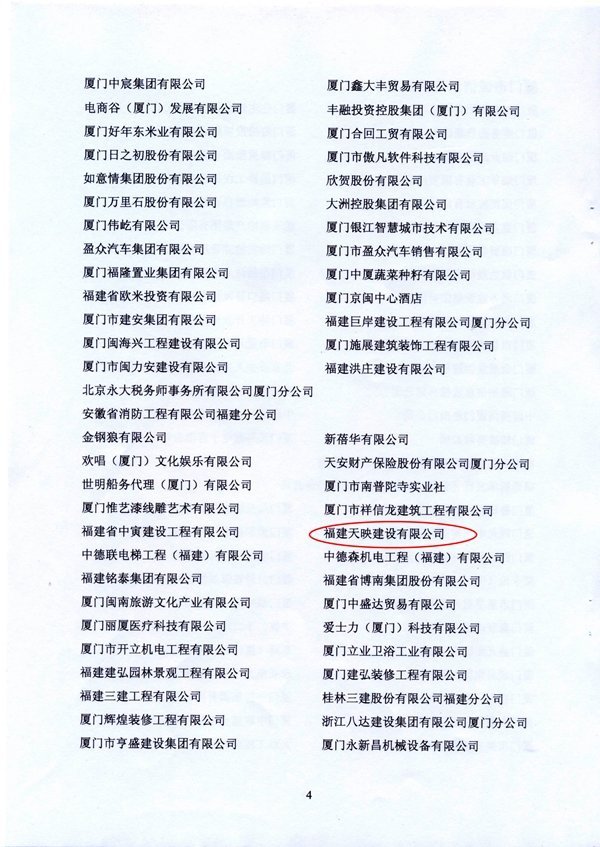 厦门中宸集团有限公司 厦门鑫大丰贸易有限公司
电商谷（厦门）发展有限公司 丰融投资控股集团（厦门）有限公司
厦门好年东米业有限公司 厦门合回工贸有限公司
厦门日之初股份有限公司 厦门市傲凡软件科技有限公司
如意情集团股份有限公司 欣贺股份有限公司
厦门万里石股份有限公司 大洲控股集团有限公司
厦门伟屹有限公司 厦门银江智慧城市技术有限公司
盈众汽车集团有限公司 厦门市盈众汽车销售有限公司
厦门福隆置业集团有限公司 厦门中厦蔬菜种籽有限公司
福建省欧米投资有限公司 厦门京闽中心酒店
厦门市建安集团有限公司 福建巨岸建设工程有限公司厦门分公司
厦门闽海兴工程建设有限公司 厦门施展建筑装饰工程有限公司
厦门市闽力安建设有限公司 福建洪庄建设有限公司
北京永大税务师事务所有限公司厦门分公司
安徽省消防工程有限公司福建分公司
金钢狼有限公司 新蓓华有限公司
欢唱（厦门）文化娱乐有限公司 天安财产保险股份有限公司厦门分公司
世明船务代理（厦门）有限公司 厦门市南普陀寺实业社
厦门惟艺漆线雕艺术有限公司 厦门市祥信龙建筑工程有限公司
福建省中寅建设工程有限公司 福建天映建设有限公司
中德联电梯工程（福建）有限公司 中德森机电工程（福建）有限公司
福建铭泰集团有限公司 福建省博南集团股份有限公司
厦门闽南旅游文化产业有限公司 厦门中盛达贸易有限公司
厦门丽厦医疗科技有限公司 爱士力（厦门）科技有限公司
厦门市开立机电工程有限公司 厦门立业卫浴工业有限公司
福建建弘园林景观工程有限公司 厦门建弘装修工程有限公司
福建三建工程有限公司 桂林三建股份有限公司福建分公司
厦门辉煌装修工程有限公司 浙江八达建设集团有限公司厦门分公司
厦门市亨盛建设集团有限公司 厦门永新昌机械设备有限公司
4